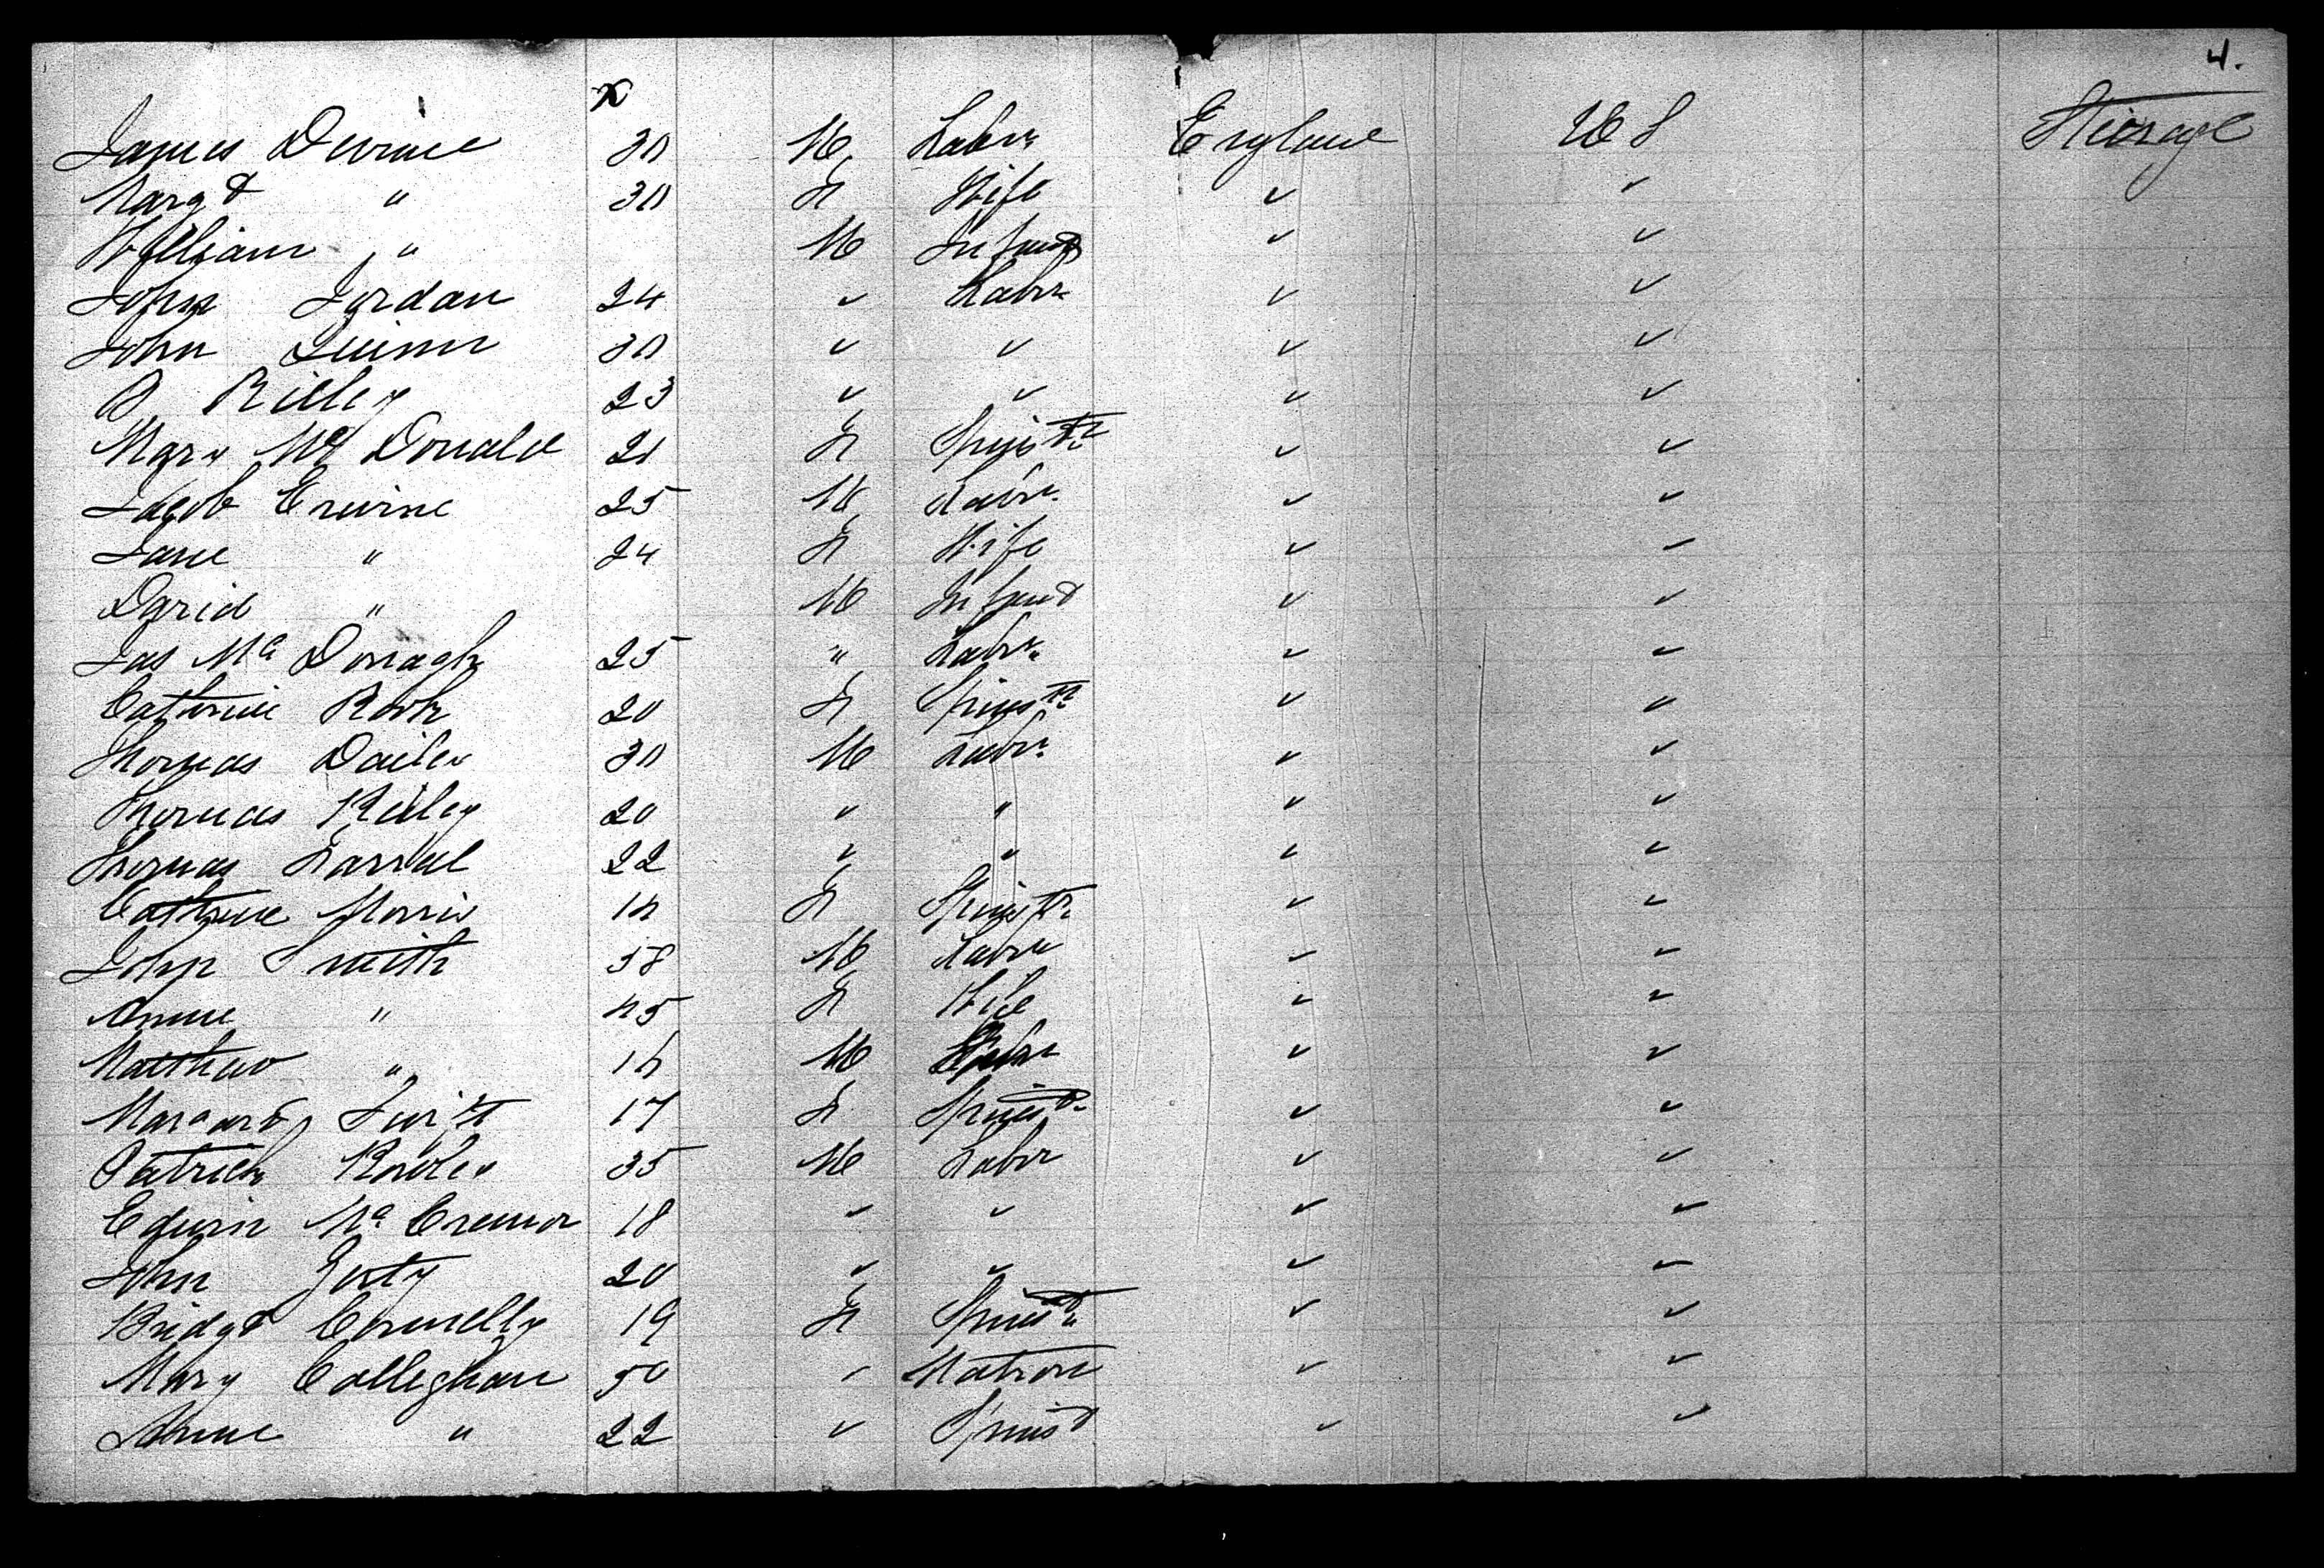 4.
x
James Devine 30 M Labr. England U S Steerage
Margt " 30 F Wife " "
William " M Infant " "
John Jordan 24 " Labr " "
John Quinn 30 " " " "
P Rielly 23 " " " "
Mary Mc Donald 21 F Spinstr. " "
Jacob Erwine 25 M Labr. " "
Jane " 24 F Wife " "
David " M Infant " "
Jas Mc Donagh 25 " Labr. " "
Catherine Rork 20 F Spinstr. " "
Thomas Dailey 30 M Labr. " "
Thomas Rieley 20 " " " "
Thomas Farrell 22 " " " "
Cathrine Morris 18 F Spinstr. " "
John Smith 58 M Labr " "
Anne " 45 F Wife " "
Matthew " 16 M Labr " "
Margaret Swift 17 F Spinst. " "
Patrick Rowley 35 M Labr " "
Edwin Mc 18 " " " "
John 20 " " " "
Bridgt Connelly 19 F Spinstr. " "
Mary Colleghan 50 " Matron " "
Anne " 22 " Spinst " "